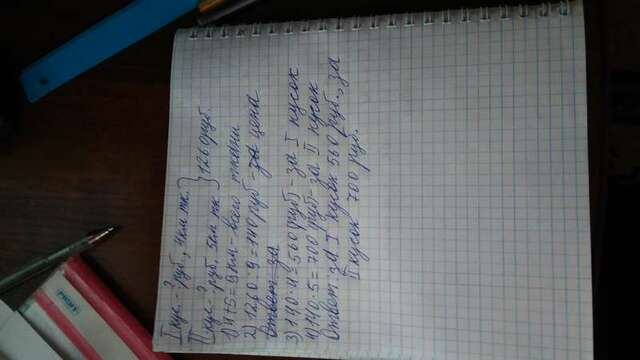 I кус. - ? руб., 4км тк.
II кус - ? руб, 5км тк
1260руб.
1) 4+5=9км - всего ткани
2) 1260:9=140руб - за цена
Ответ за
3) 140·4=560(руб) - за I кусок
4) 140·5=700(руб) - за II кусок
Ответ: за I кусок 560 руб., за
II кусок 700 руб.